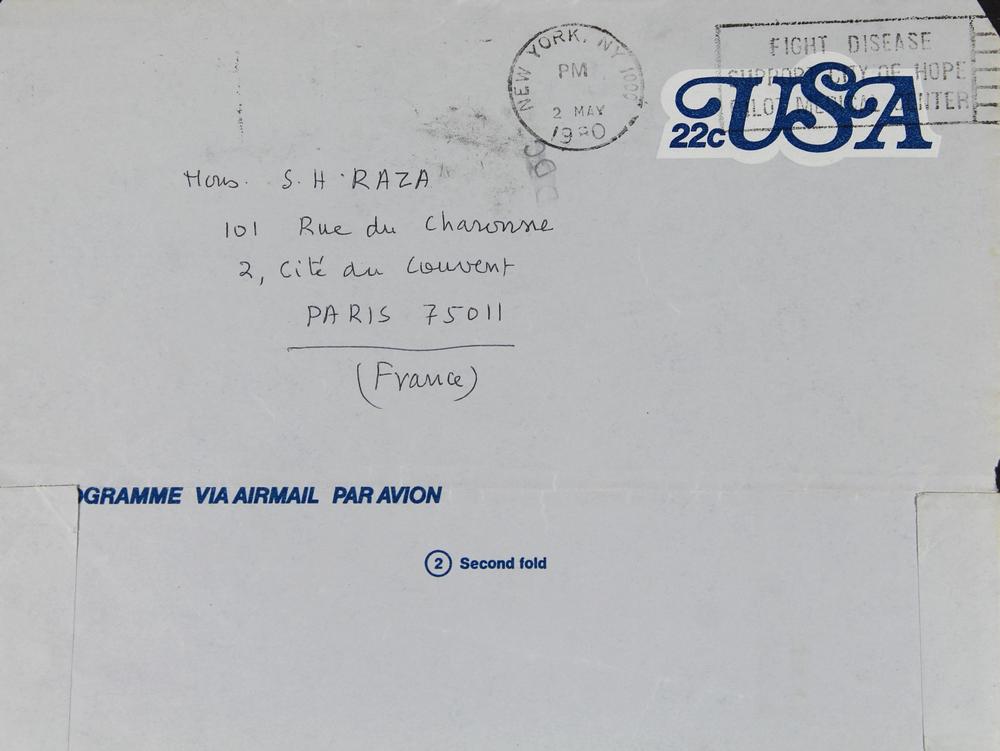 NEW YORK, NY 100
PM
2 MAY
1980
FIGHT DISEASE
SUPPORT CITY OF HOPE
PILOT MEDICAL CENTER
USA
22c
Mons. S. H. RAZA
101 Rue du Charonne
2, Cité du Couvent
PARIS 75011
(France)
OGRAMME VIA AIRMAIL PAR AVION
2 Second fold